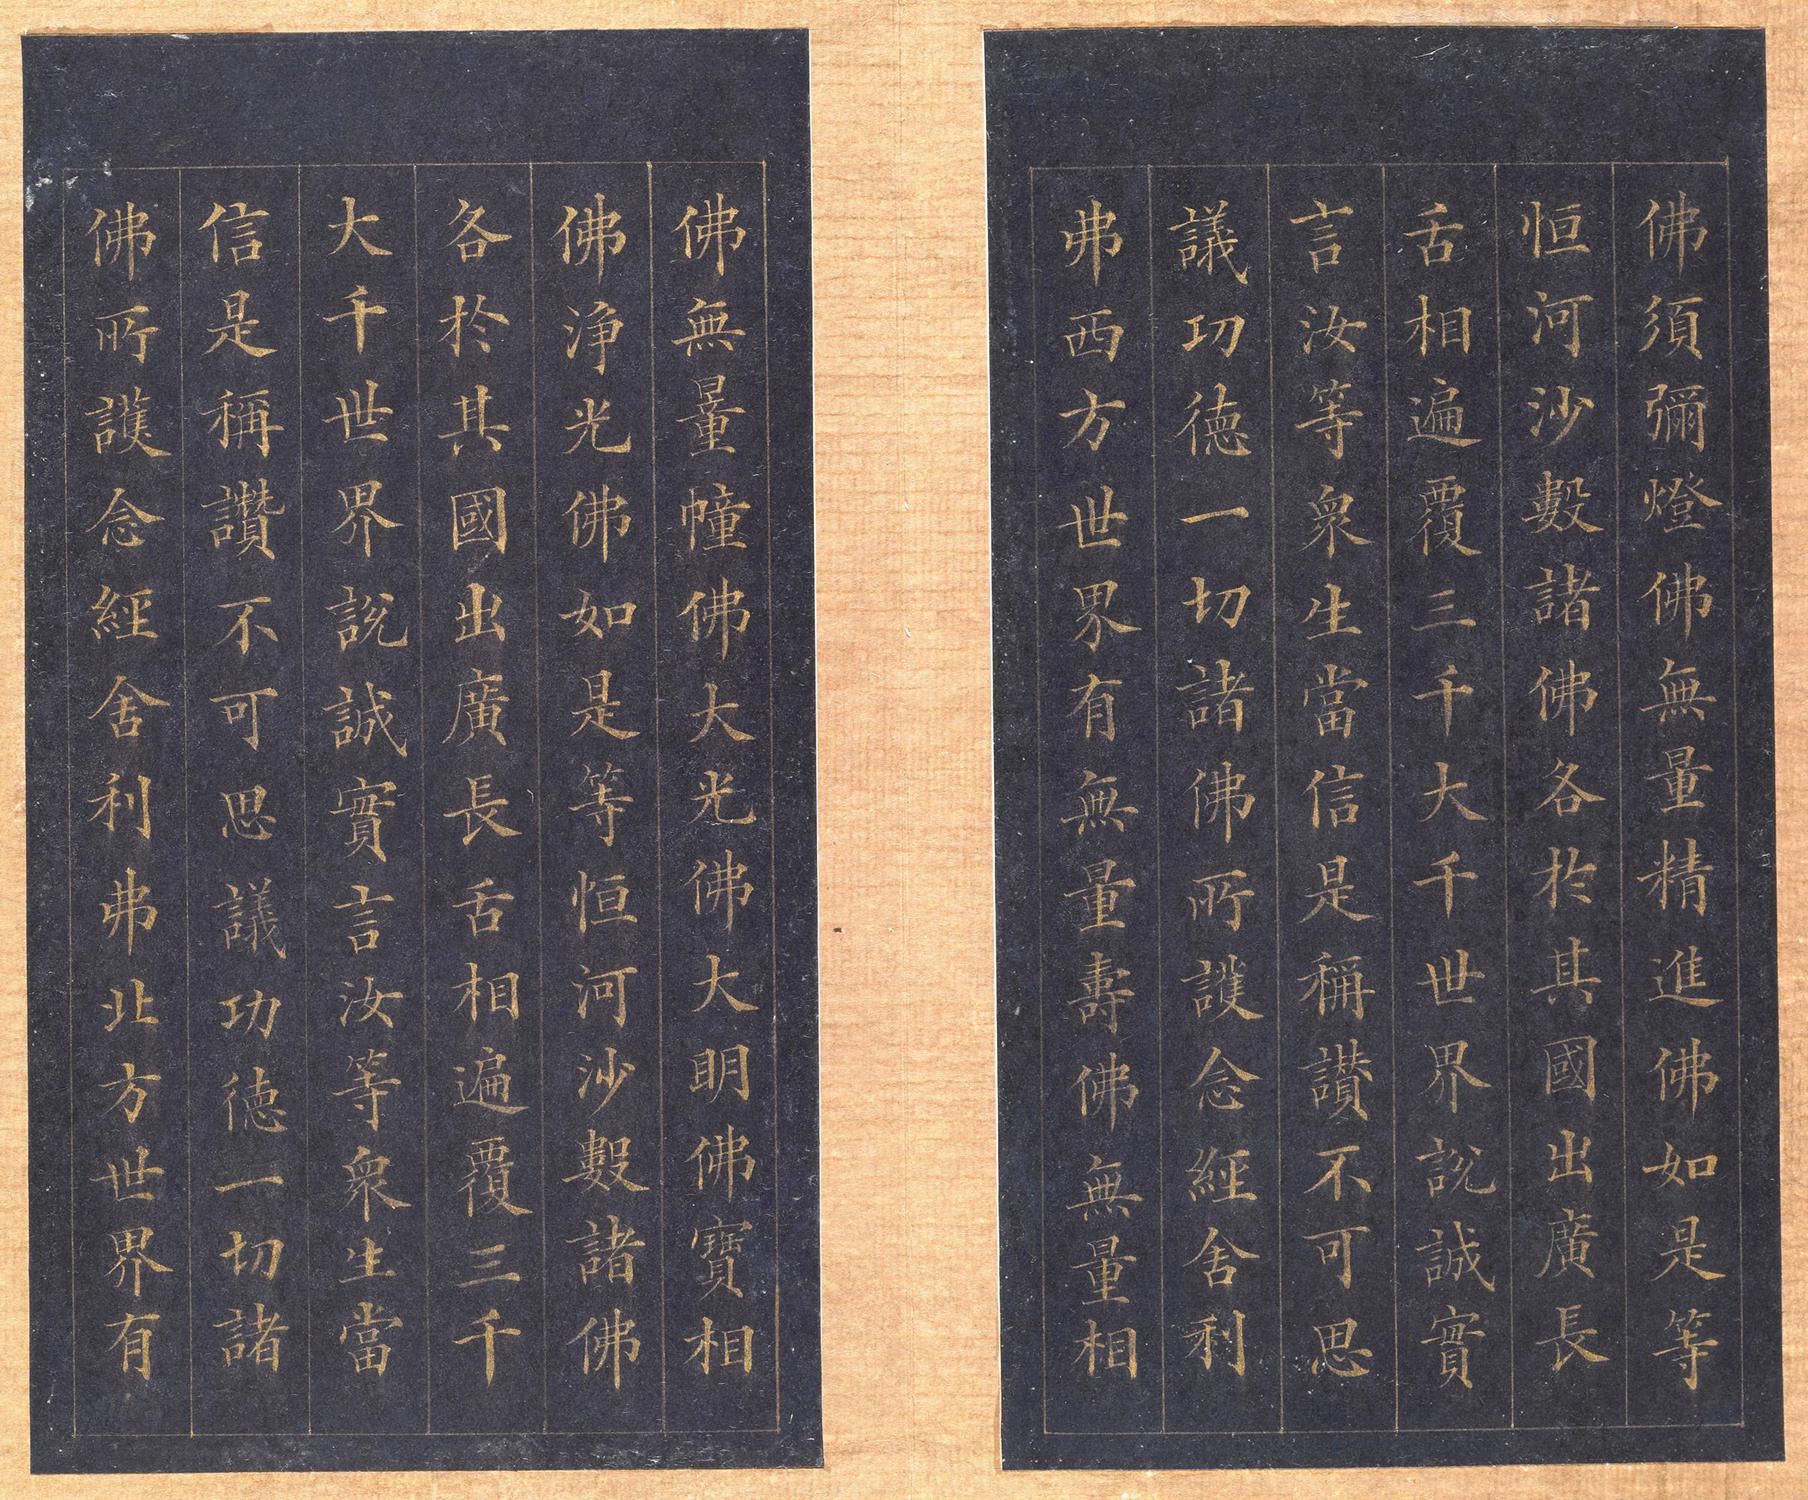 佛須彌燈佛無量精進佛如是等
恒河沙數諸佛各於其國出廣長
舌相遍覆三千大千世界説誠實
言汝等衆生當信是稱讃不可思
議功德一切諸佛所護念經舍利
弗西方世界有無量壽佛無量相
佛無量幢佛大光佛大明佛寶相
佛淨光佛如是等恒河沙數諸佛
各於其國出廣長舌相遍覆三千
大千世界説誠實言汝等衆生當
信是稱讚不可思議功德一切諸
佛所護念經舍利弗北方世界有